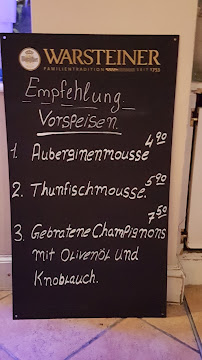 WARSTEINER
FAMILIENTRADITION SEIT 1753
Empfehlung
Vorspeisen
1. Auberginenmousse 4,90
2. Thunfischmousse. 5,90
7,50
3. Gebratene Champignons
mit Olivenöl und
Knoblauch.